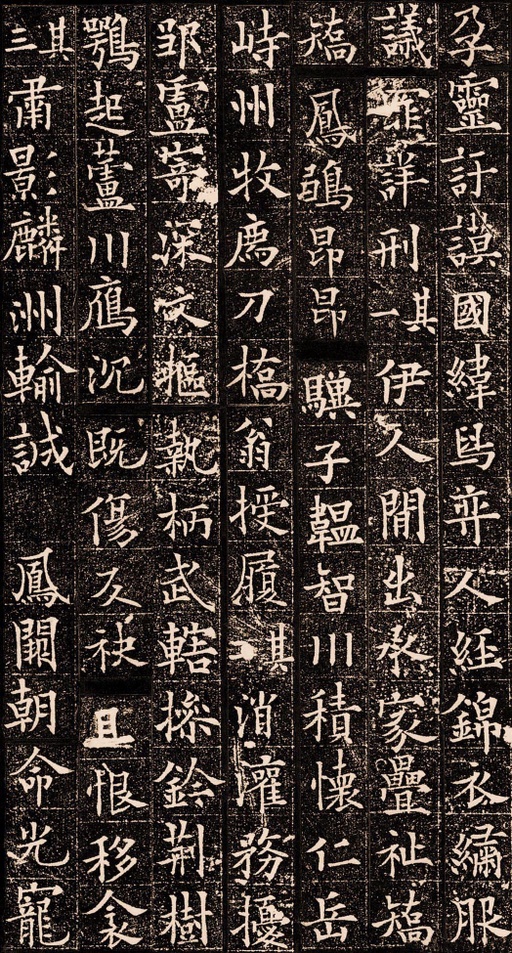 孕靈訏謨國緯舄弈人經錦衣繡服
議罪詳刑其一伊人間出承家疊祉矯
矯鳳昂昂驥子韞智川積懷仁岳
峙州牧薦刀橋翁授履其二消灌務擾
邹盧寄深文樞執柄武轄操鈐荊樹
鶚起蘆川鴈沉既傷友袂且恨移衾
其三肅影麟洲輸誠鳳闕朝命光寵